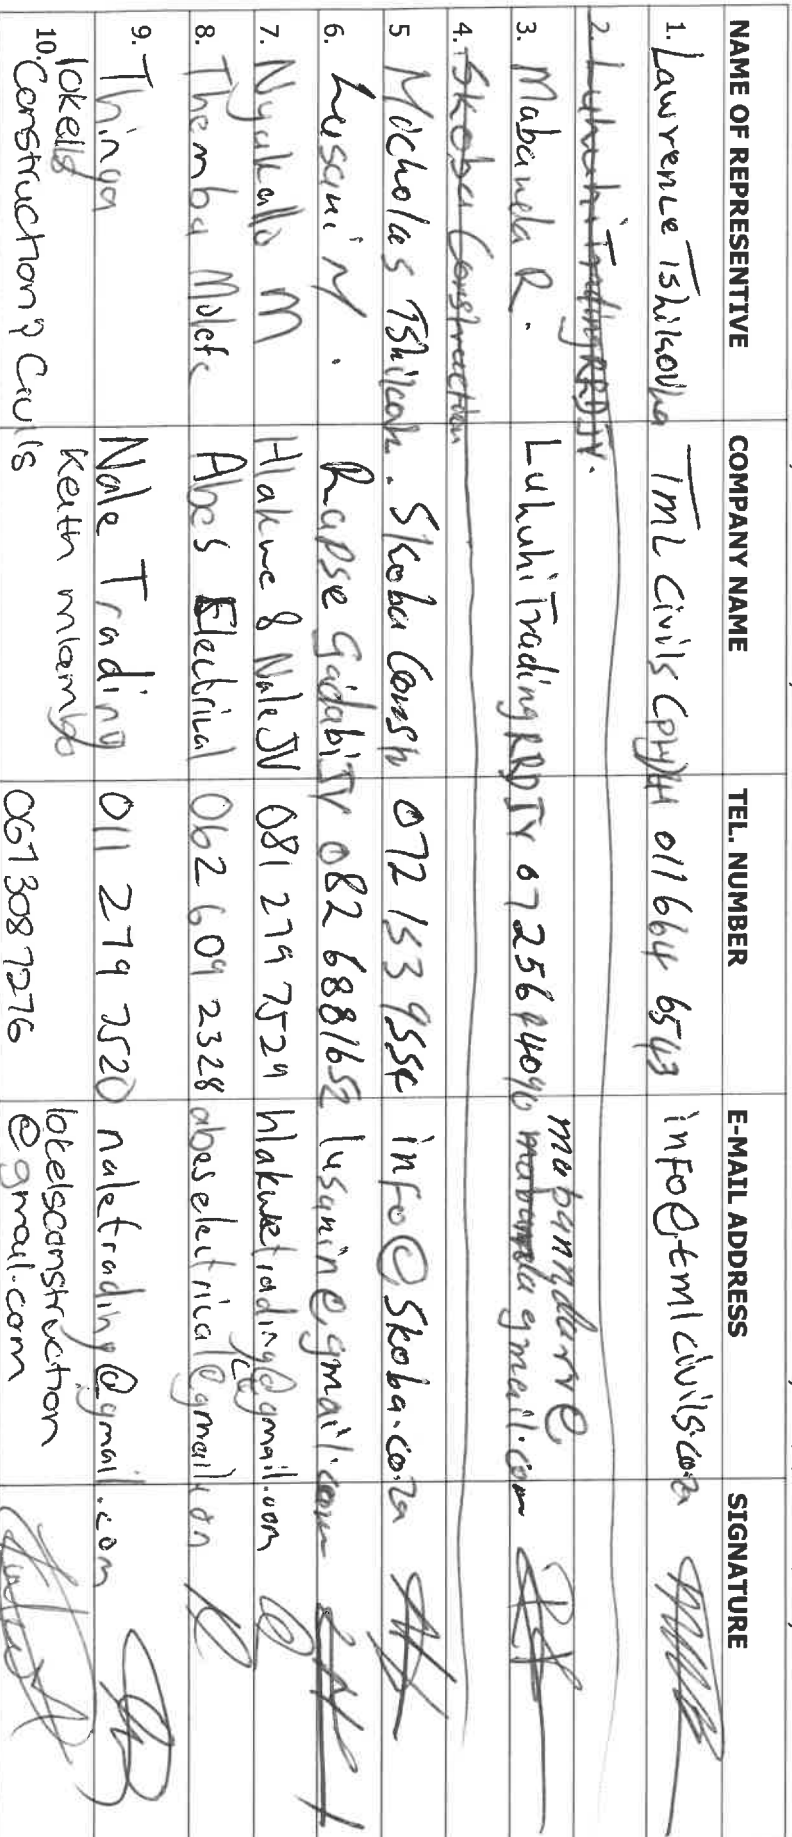 NAME OF REPRESENTIVE COMPANY NAME TEL. NUMBER E-MAIL ADDRESS SIGNATURE
1. Lawrence Tshikovha TML Civils (Pty) 011 664 6543 info@tmlcivils.co.za
2. Luhuhi Trading RRD JV.
3. Mabanda R. Luhuhi Trading RRD JV mabanndarr@
gmail.com
4. Skoba Construction
5 Nicholas Skoba Const 072 153 9554 info@skoba.co.za
6. Lusani N. Rapse Gadabi JV 082 6881652 lusanin@gmail.com
7. Nyakallo M Hlakwe & Nale JV 081 279 7524 hlakwetrading@gmail.com
8. Themba Molefe Abes Electrical 062 609 2328 abeselectrical@gmail.com
9. Thinga Nale Trading 011 279 7520 naletrading@gmail.com
10. lokells Construction & Civils Keith mlambo 067 308 7276 lokelsconstruction
@gmail.com